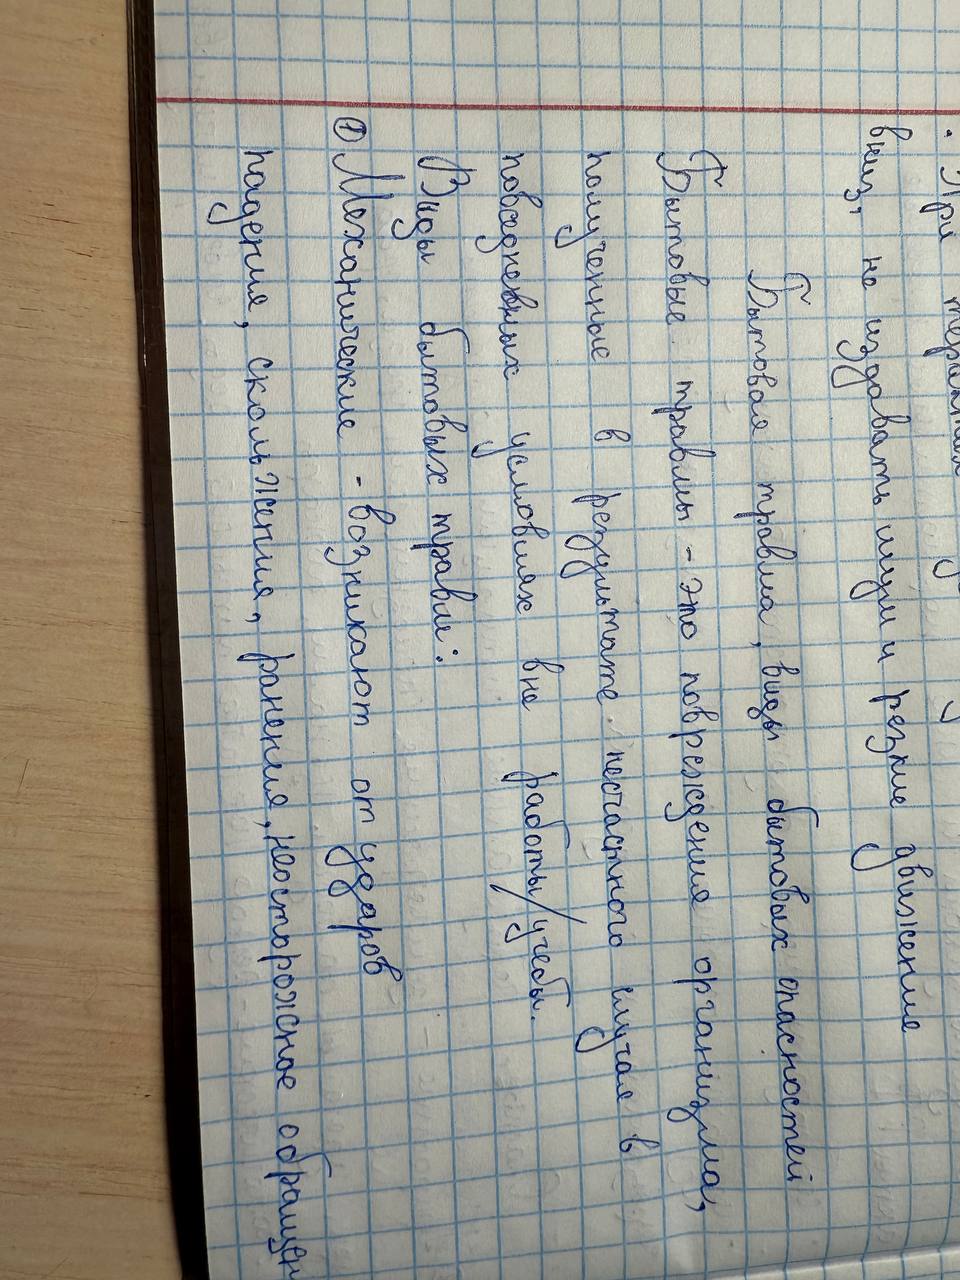 · При
вниз, не издавать шум и резкие движение
Бытовая травма, виды бытовых опасностей
Бытовые травмы - это повреждение организма,
полученные в результате несчастного случая в
повседневных условиях вне работы/учебы.
Виды бытовых травм:
① Механические - возникают от ударов
падение, скольжения, ранения, неосторожное обращен